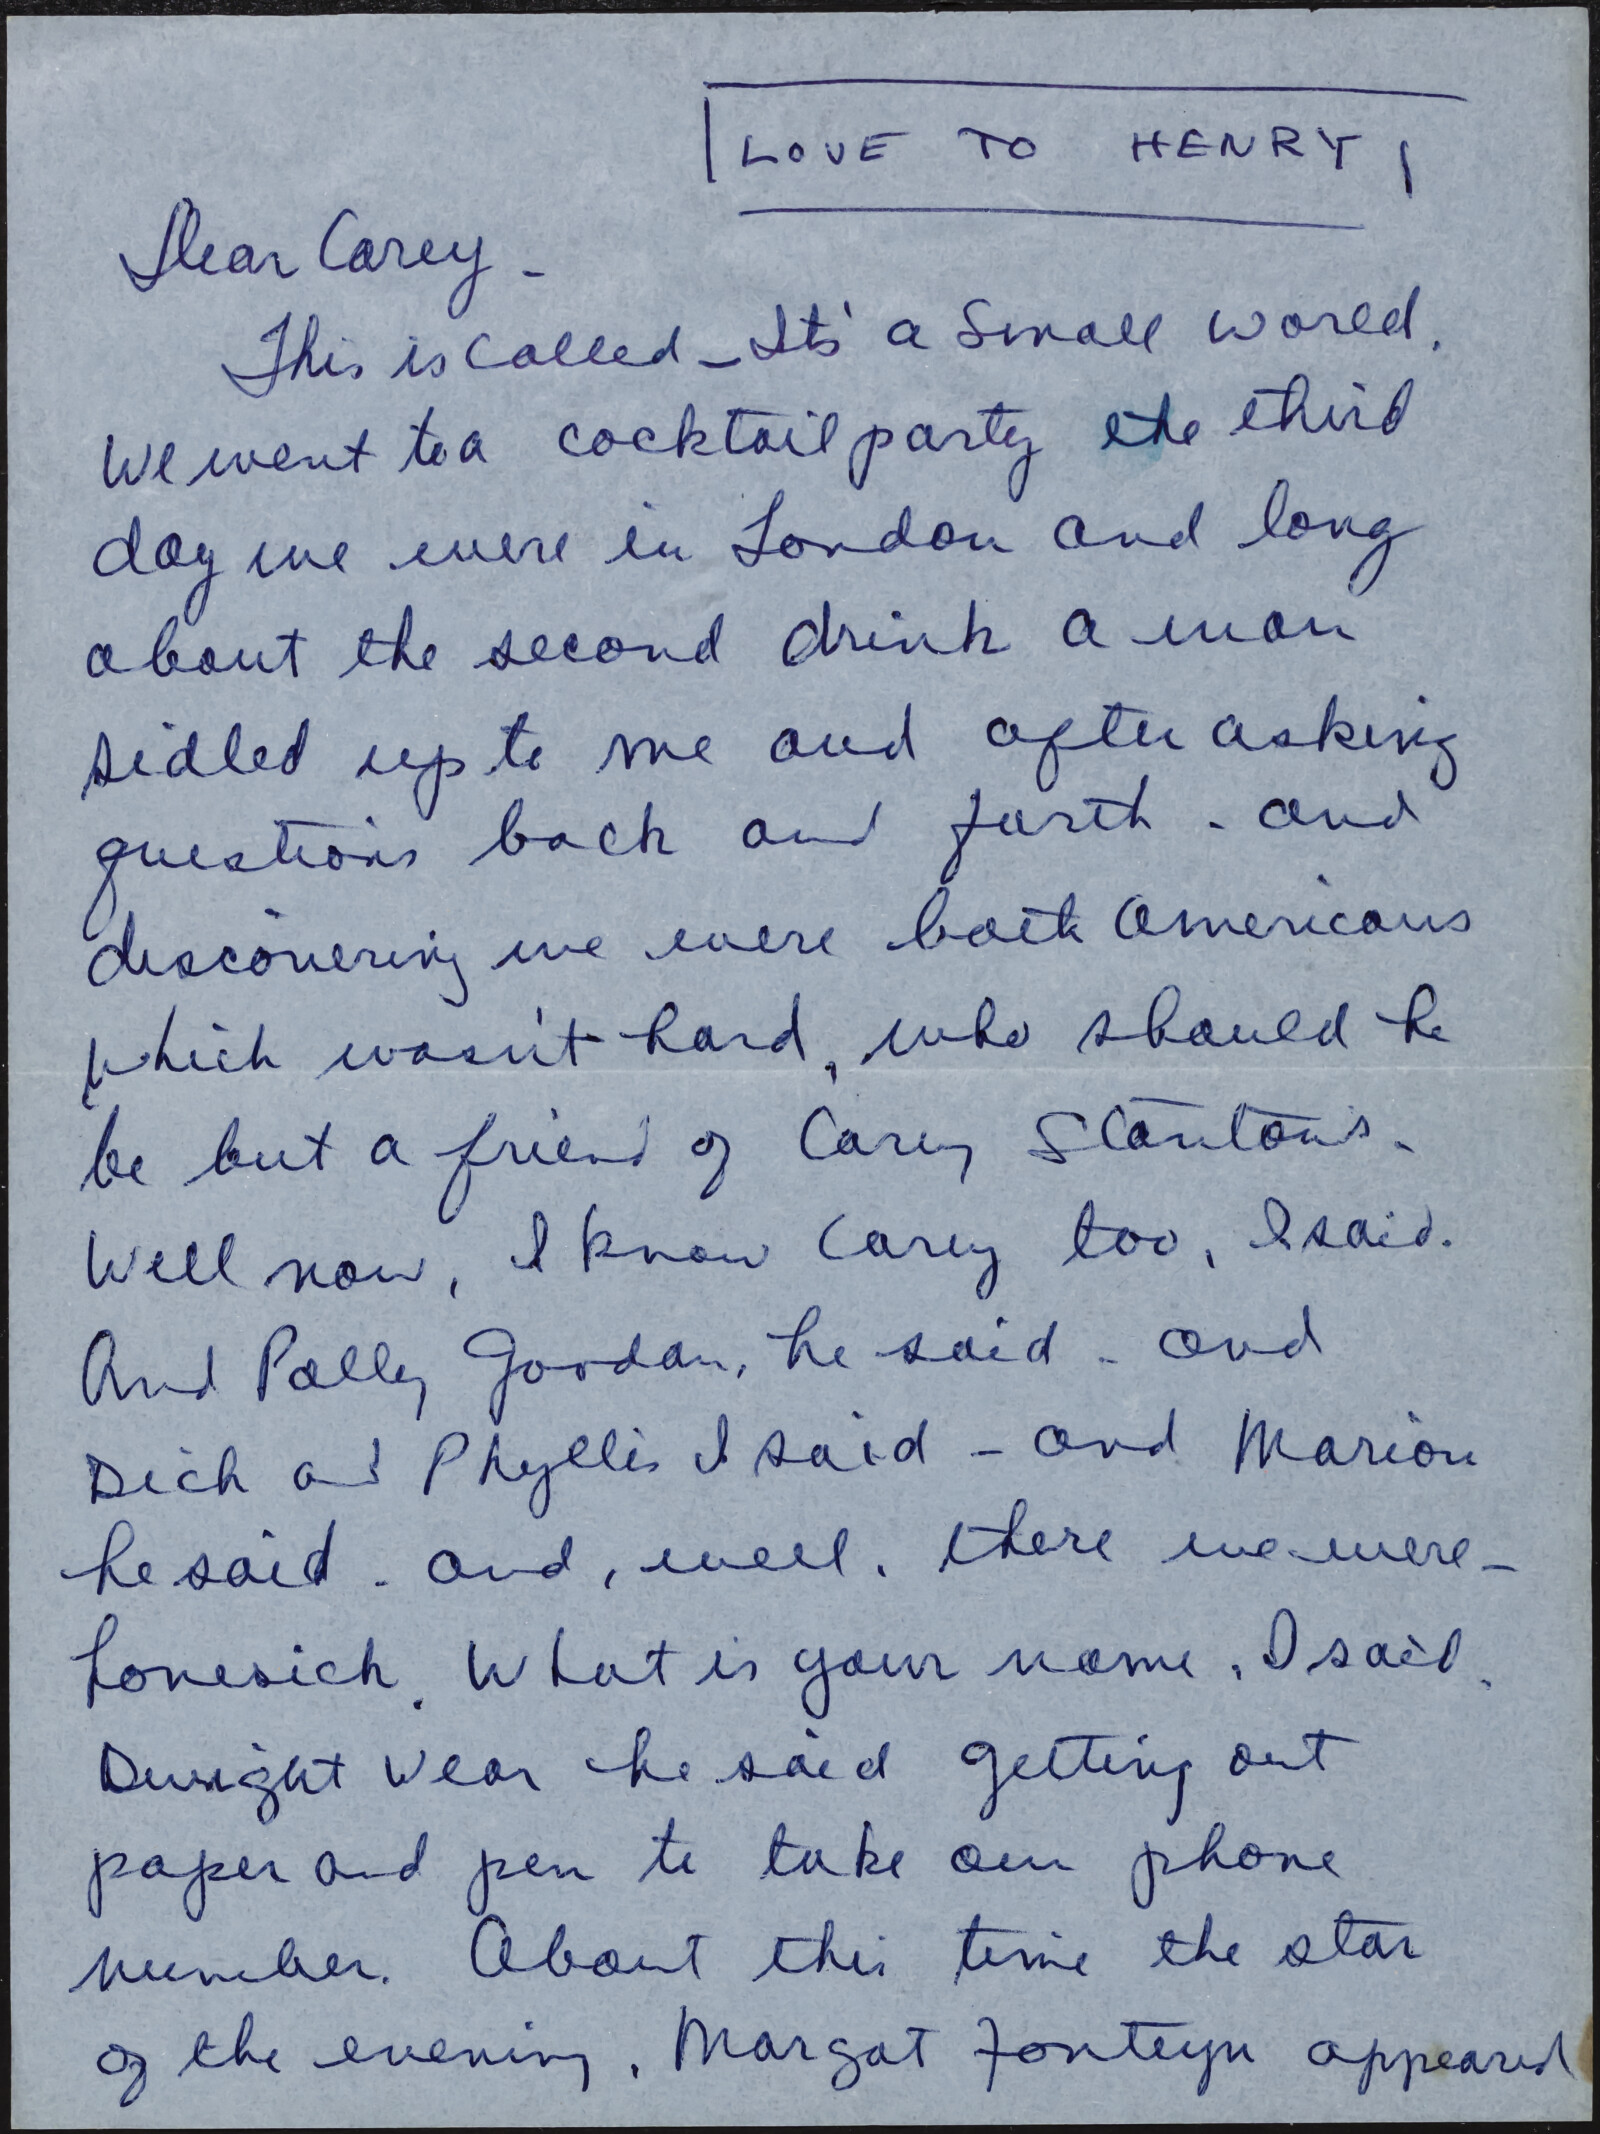 LOVE TO HENRY
Dear Carey -
This is called - Its' a small world.
We went to a cocktail party the third
day we were in London and long
about the second drink a man
sidled up to me and after asking
questions back and forth - and
discovering we were both Americans
which wasn't hard, who should he
be but a friend of Carey Stanton's.
Well now, I know Carey too, I said.
And Polly Gordan, he said - and
Dick and Phyllis I said - and Marion
he said - and, well, there we were -
homesick. What is your name, I said.
Dwight Wear he said getting out
paper and pen to take our phone
number. About this time the star
of the evening, Margot Fonteyn appeared